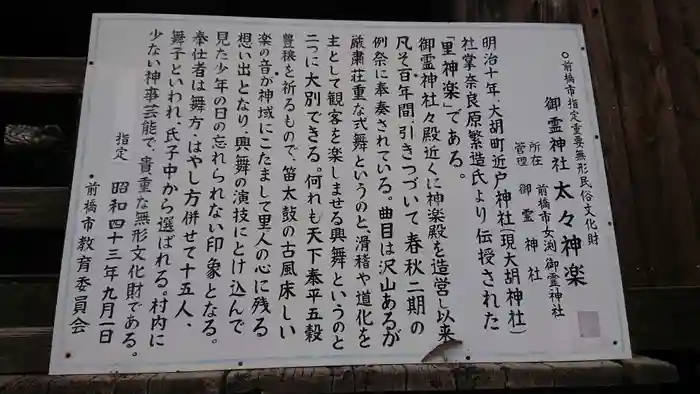 ○前橋市指定重要無形民俗文化財
御霊神社 太々神楽
所在 前橋市女渕 御霊神社
管理 御霊神社
明治十年、大胡町近戸神社(現大胡神社)
社掌奈良原繁造氏より伝授された
「里神楽」である。
御霊神社々殿近くに神楽殿を造営し以来
凡そ百年間、引きつづいて春秋二期の
例祭に奉奏されている。曲目は沢山あるが
厳粛荘重な式舞というのと、滑稽や道化を
主として観客を楽しませる興舞というのと
二つに大別できる。何れも天下泰平五穀
豊穣を祈るもので、笛太鼓の古風床しい
楽の音が神域にこだまして里人の心に残る
想い出となり、興舞の演技にとけ込んで
見た少年の日の忘れられない印象となる。
奉仕者は舞方、はやし方併せて十五人、
舞子といわれ、氏子中から選ばれる。村内に
少ない神事芸能で、貴重な無形文化財である。
指定 昭和四十三年九月一日
・前橋市教育委員会